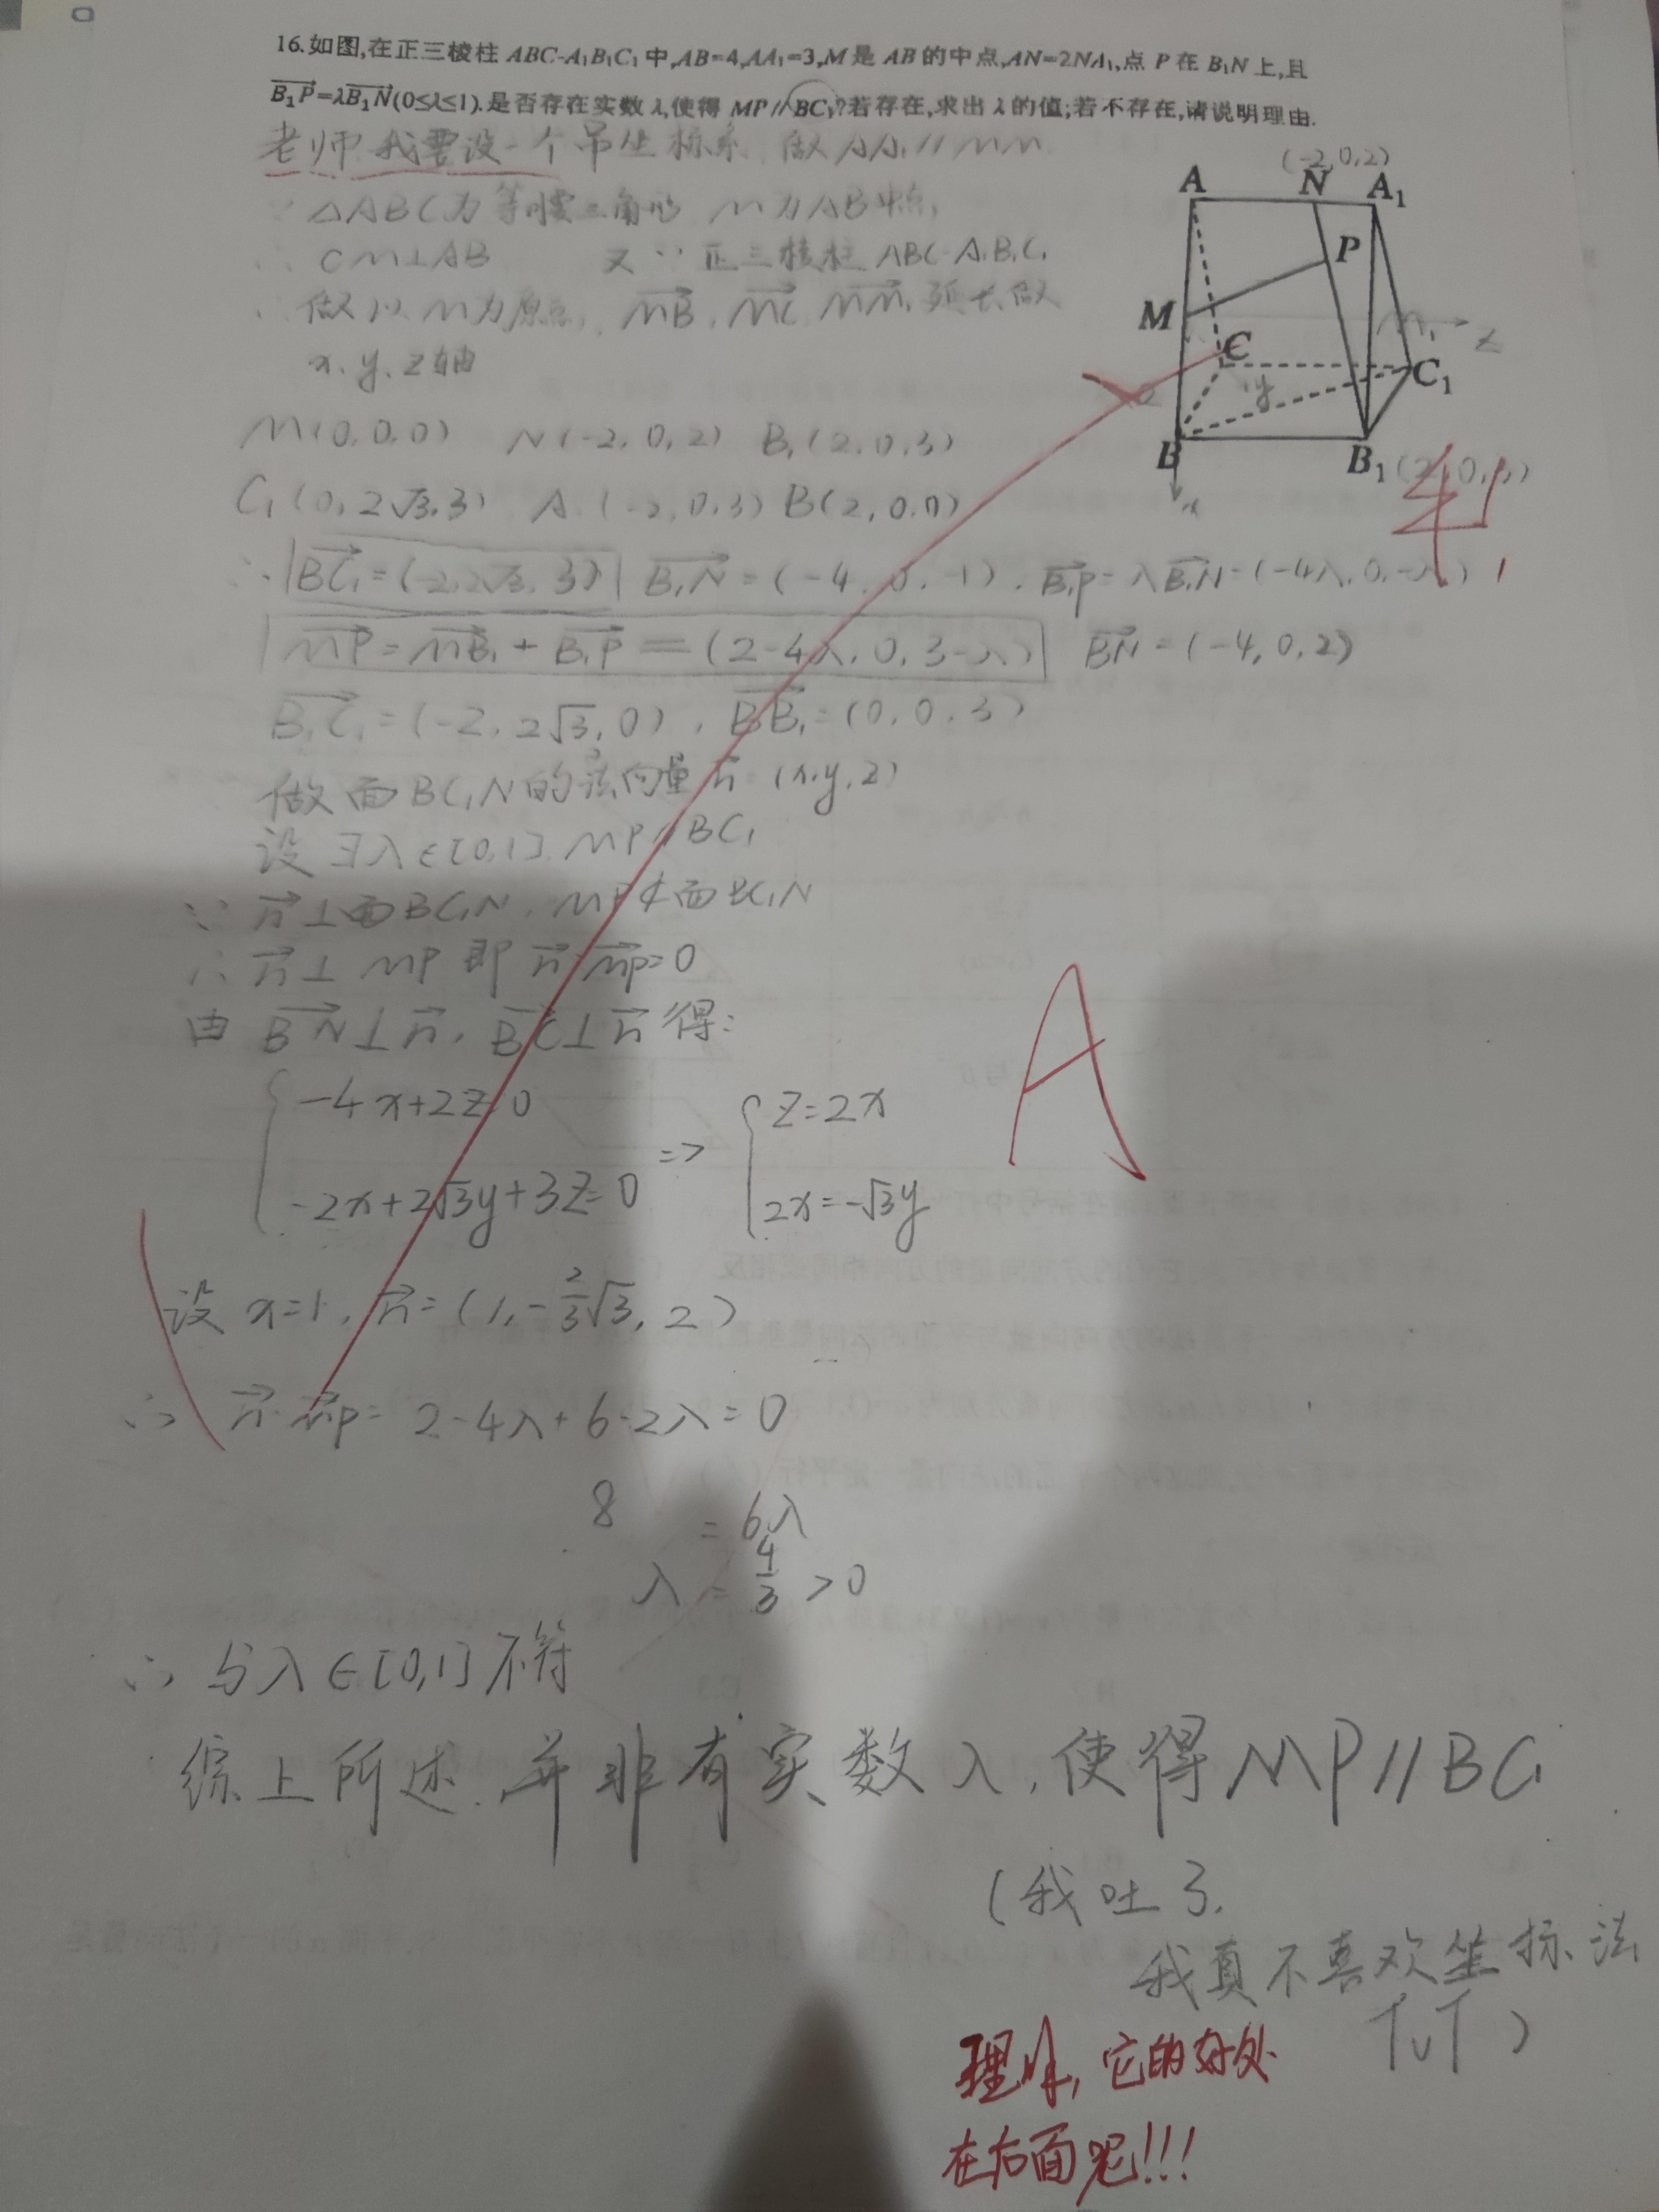 16.如图,在正三棱柱 ABC-A₁B₁C₁ 中,AB=4,AA₁=3,M 是 AB 的中点,AN=2NA₁,点 P 在 B₁N 上,且
B₁P=λB₁N(0≤λ≤1).是否存在实数 λ,使得 MP∥BC₁?若存在,求出 λ 的值;若不存在,请说明理由.
老师 我要设一个吊坐标系 做AA₁//MM₁
∵ △ABC为等腰三角形 M为AB中点,
∴ CM⊥AB 又∵正三棱柱ABC-A₁B₁C₁
∴ 做以M为原点, MB, MC, MM₁ 延长做
x、y、z轴
(-2,0,2)
A N A₁
P
M M₁ z
C C₁
y
B B₁(2,0,3)
x
M(0,0,0) N(-2,0,2) B₁(2,0,3)
C₁(0,2√3,3) A₁(-2,0,3) B(2,0,0)
∴ BC₁=(-2,2√3,3) B₁N=(-4,0,-1), B₁P=λB₁N=(-4λ,0,-λ)
MP=MB₁+B₁P=(2-4λ,0,3-λ) BN=(-4,0,2)
B₁C₁=(-2,2√3,0), BB₁=(0,0,3)
做面BC₁N的法向量n=(x,y,z)
设∃λ∈[0,1], MP//BC₁
∵ n⊥面BC₁N, MP⊄面BC₁N
∴ n⊥MP 即 n·MP=0
由 BN⊥n, BC₁⊥n 得:
-4x+2z=0 z=2x
=>
-2x+2√3y+3z=0 2x=-√3y
A
设 x=1, n=(1,-2/3√3,2)
∴ n·MP=2-4λ+6-2λ=0
8 =6λ
λ=4/3>0
∴ 与λ∈[0,1]不符
综上所述,并非有实数λ,使得MP//BC₁
(我吐了,
我真不喜欢坐标法
TvT)
理解,它的好处
在后面呢!!!